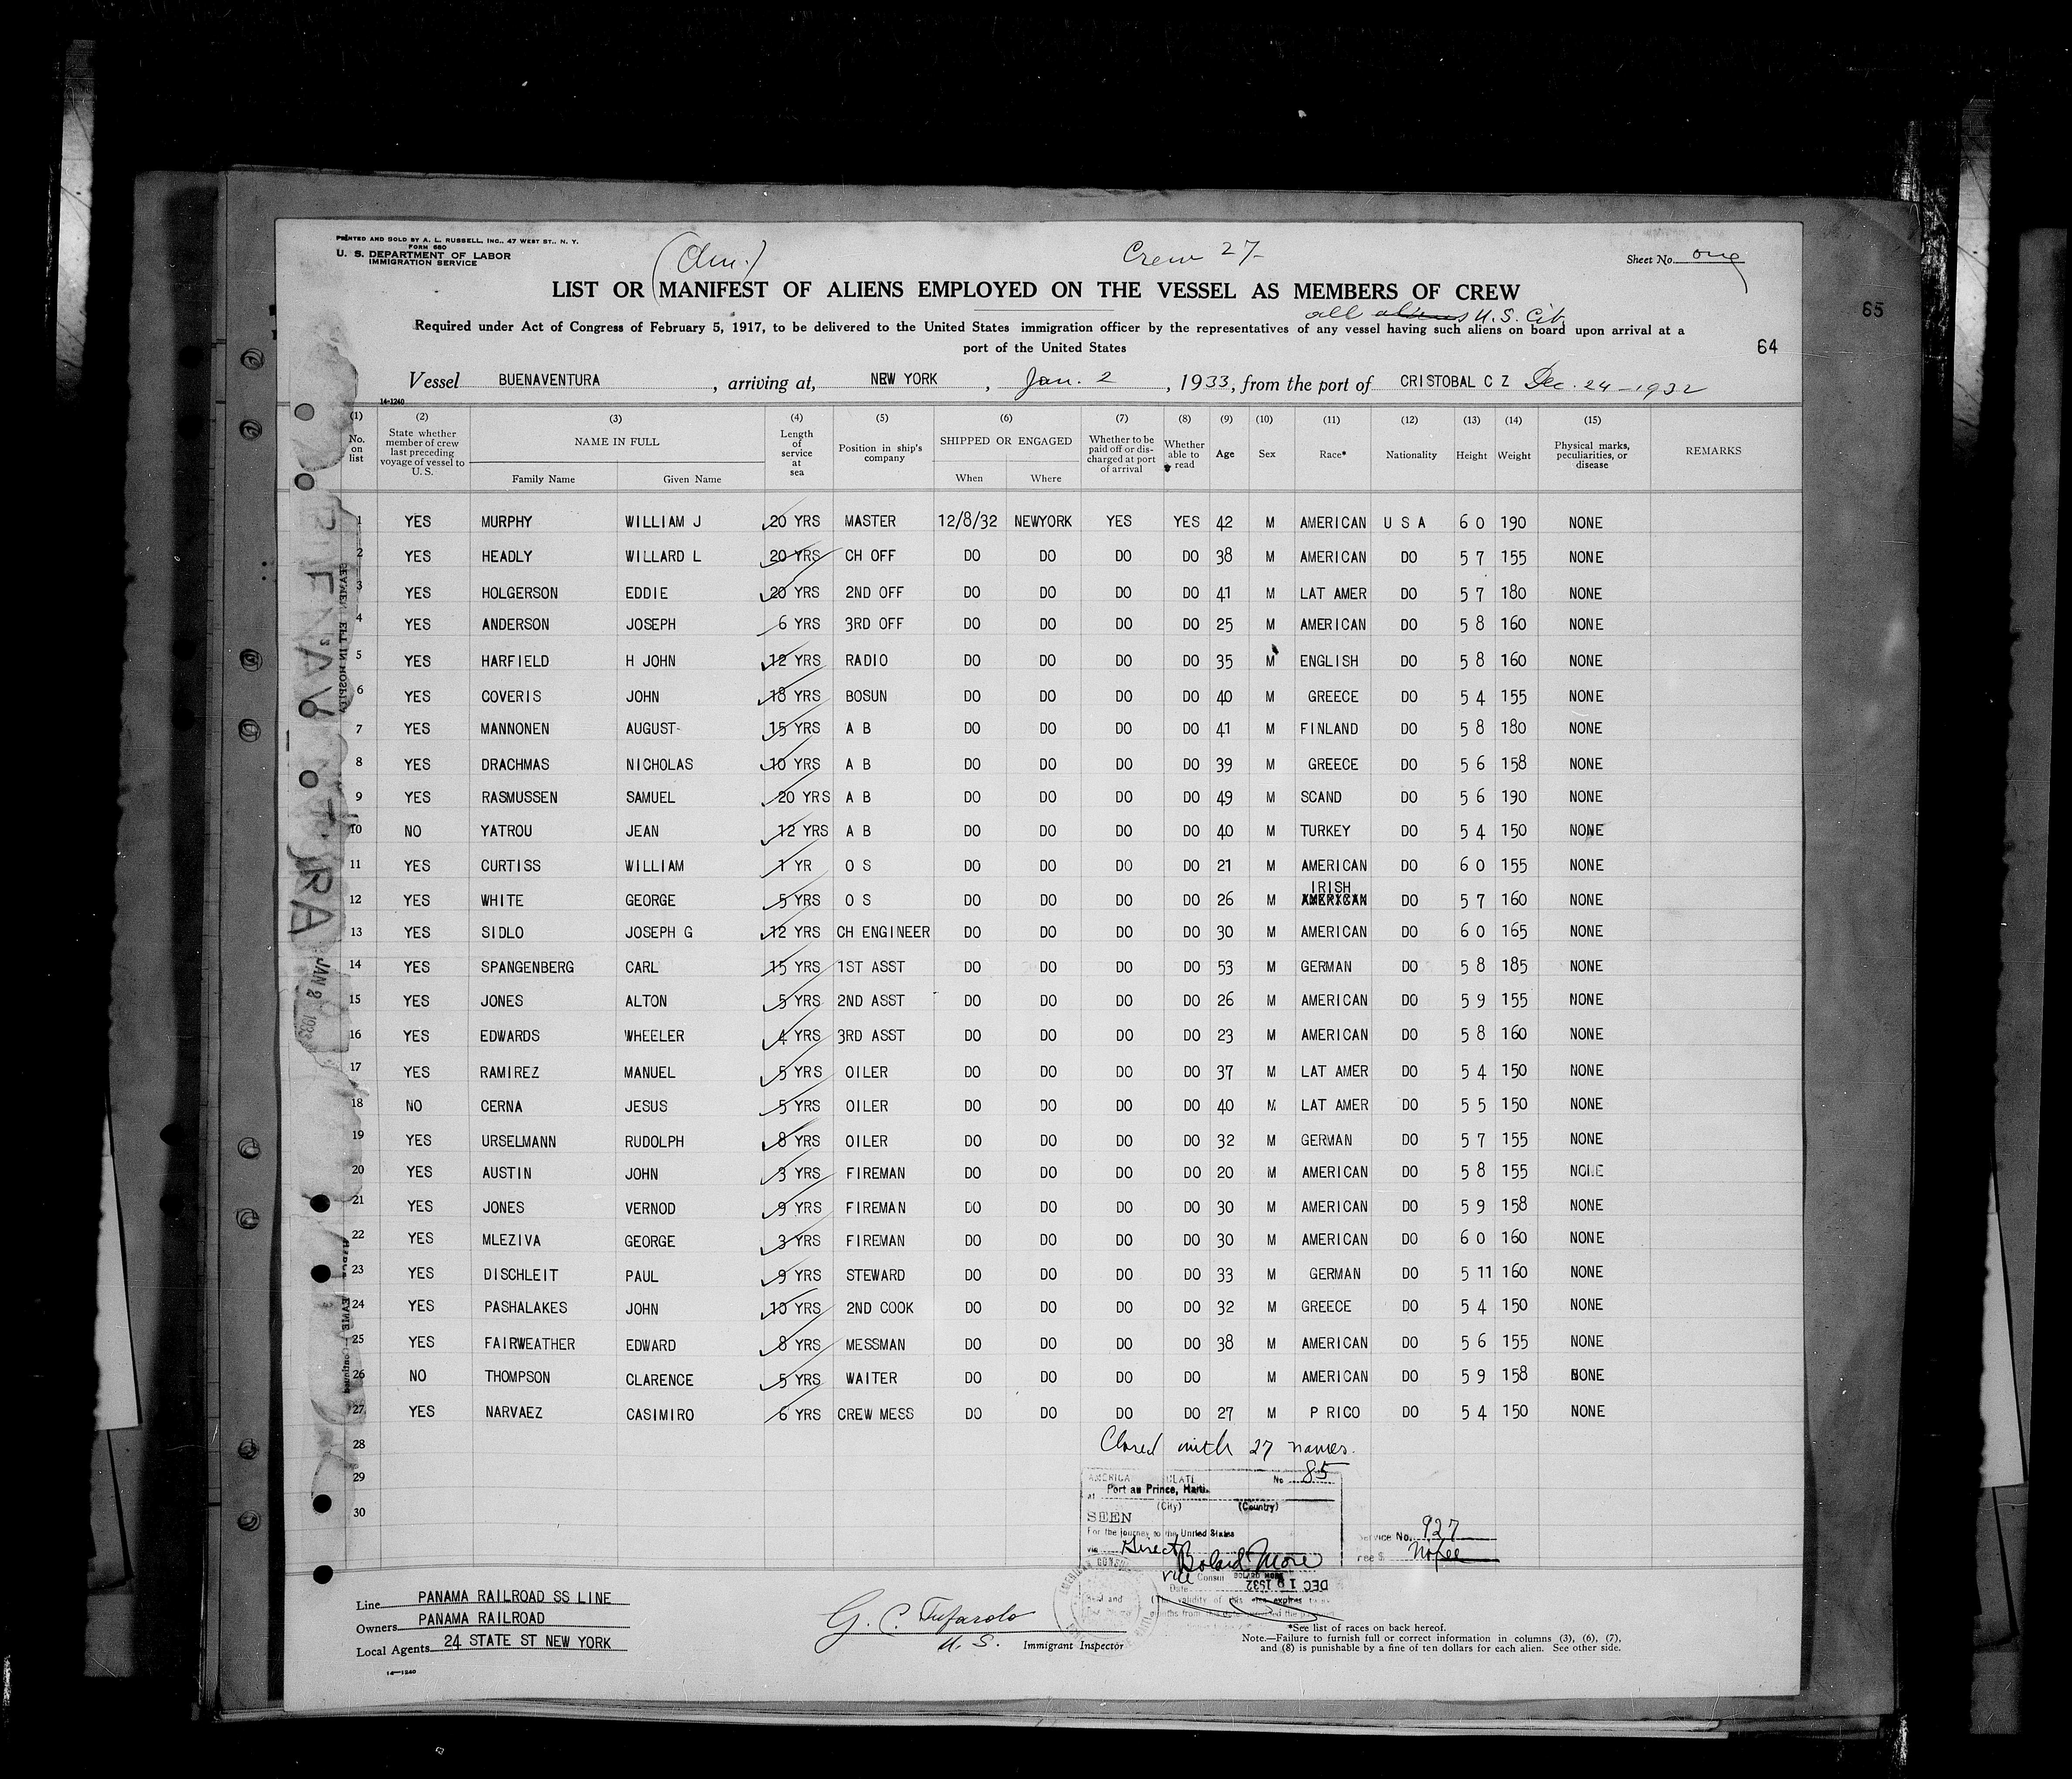 PRINTED AND SOLD BY A. L. RUSSELL, INC., 47 WEST ST., N. Y.
FORM 680
U. S. DEPARTMENT OF LABOR
IMMIGRATION SERVICE
(Am.)
Crew 27
Sheet No. one
LIST OR MANIFEST OF ALIENS EMPLOYED ON THE VESSEL AS MEMBERS OF CREW
all aliens U.S. Cit.
65
Required under Act of Congress of February 5, 1917, to be delivered to the United States immigration officer by the representatives of any vessel having such aliens on board upon arrival at a
port of the United States
64
Vessel BUENAVENTURA, arriving at, NEW YORK, Jan. 2, 1933, from the port of CRISTOBAL C Z Dec. 24-1932
14-1240
(1) (2) (3) (4) (5) (6) (7) (8) (9) (10) (11) (12) (13) (14) (15)
No. on list State whether member of crew last preceding voyage of vessel to U. S. NAME IN FULL Family Name Given Name Length of service at sea Position in ship's company SHIPPED OR ENGAGED When Where Whether to be paid off or discharged at port of arrival Whether able to read Age Sex Race* Nationality Height Weight Physical marks, peculiarities, or disease REMARKS
1 YES MURPHY WILLIAM J 20 YRS MASTER 12/8/32 NEWYORK YES YES 42 M AMERICAN U S A 6 0 190 NONE
2 YES HEADLY WILLARD L 20 YRS CH OFF DO DO DO DO 38 M AMERICAN DO 5 7 155 NONE
3 YES HOLGERSON EDDIE 20 YRS 2ND OFF DO DO DO DO 41 M LAT AMER DO 5 7 180 NONE
4 YES ANDERSON JOSEPH 6 YRS 3RD OFF DO DO DO DO 25 M AMERICAN DO 5 8 160 NONE
5 YES HARFIELD H JOHN 12 YRS RADIO DO DO DO DO 35 M ENGLISH DO 5 8 160 NONE
6 YES COVERIS JOHN 18 YRS BOSUN DO DO DO DO 40 M GREECE DO 5 4 155 NONE
7 YES MANNONEN AUGUST 15 YRS A B DO DO DO DO 41 M FINLAND DO 5 8 180 NONE
8 YES DRACHMAS NICHOLAS 10 YRS A B DO DO DO DO 39 M GREECE DO 5 6 158 NONE
9 YES RASMUSSEN SAMUEL 20 YRS A B DO DO DO DO 49 M SCAND DO 5 6 190 NONE
10 NO YATROU JEAN 12 YRS A B DO DO DO DO 40 M TURKEY DO 5 4 150 NONE
11 YES CURTISS WILLIAM 1 YR O S DO DO DO DO 21 M AMERICAN DO 6 0 155 NONE
IRISH
12 YES WHITE GEORGE 5 YRS O S DO DO DO DO 26 M AMERICAN DO 5 7 160 NONE
13 YES SIDLO JOSEPH G 12 YRS CH ENGINEER DO DO DO DO 30 M AMERICAN DO 6 0 165 NONE
14 YES SPANGENBERG CARL 15 YRS 1ST ASST DO DO DO DO 53 M GERMAN DO 5 8 185 NONE
15 YES JONES ALTON 5 YRS 2ND ASST DO DO DO DO 26 M AMERICAN DO 5 9 155 NONE
16 YES EDWARDS WHEELER 4 YRS 3RD ASST DO DO DO DO 23 M AMERICAN DO 5 8 160 NONE
17 YES RAMIREZ MANUEL 5 YRS OILER DO DO DO DO 37 M LAT AMER DO 5 4 150 NONE
18 NO CERNA JESUS 5 YRS OILER DO DO DO DO 40 M LAT AMER DO 5 5 150 NONE
19 YES URSELMANN RUDOLPH 8 YRS OILER DO DO DO DO 32 M GERMAN DO 5 7 155 NONE
20 YES AUSTIN JOHN 3 YRS FIREMAN DO DO DO DO 20 M AMERICAN DO 5 8 155 NONE
21 YES JONES VERNOD 9 YRS FIREMAN DO DO DO DO 30 M AMERICAN DO 5 9 158 NONE
22 YES MLEZIVA GEORGE 3 YRS FIREMAN DO DO DO DO 30 M AMERICAN DO 6 0 160 NONE
23 YES DISCHLEIT PAUL 9 YRS STEWARD DO DO DO DO 33 M GERMAN DO 5 11 160 NONE
24 YES PASHALAKES JOHN 10 YRS 2ND COOK DO DO DO DO 32 M GREECE DO 5 4 150 NONE
25 YES FAIRWEATHER EDWARD 8 YRS MESSMAN DO DO DO DO 38 M AMERICAN DO 5 6 155 NONE
26 NO THOMPSON CLARENCE 5 YRS WAITER DO DO DO DO M AMERICAN DO 5 9 158 NONE
27 YES NARVAEZ CASIMIRO 6 YRS CREW MESS DO DO DO DO 27 M P RICO DO 5 4 150 NONE
28 Closed with 27 names.
29
30
No 85
at Port au Prince, Haiti.
(City) (Country)
SEEN
For the journey to the United States
via Direct
Service No. 927
Fee $ No fee
Vice Consul
Date DEC 19 1932
JAN 2 1933
Line PANAMA RAILROAD SS LINE
Owners PANAMA RAILROAD
Local Agents 24 STATE ST NEW YORK
14-1240
G. C. Tufarolo
U. S. Immigrant Inspector
*See list of races on back hereof.
Note.—Failure to furnish full or correct information in columns (3), (6), (7),
and (8) is punishable by a fine of ten dollars for each alien. See other side.